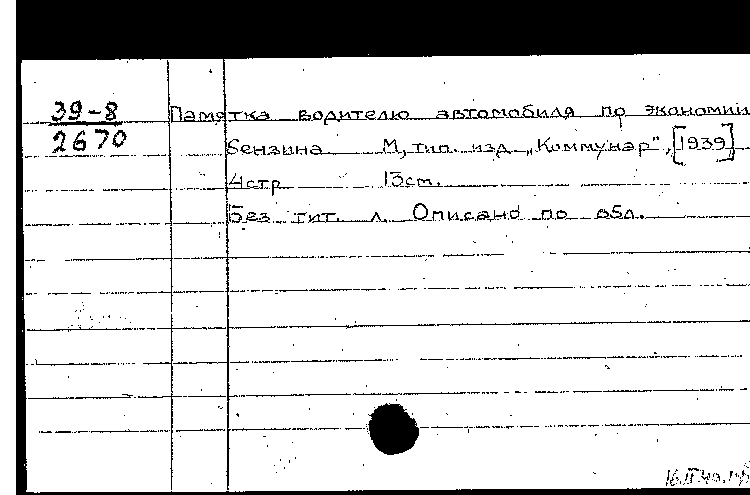 39-8
2670
Памятка водителю автомобиля по экономии
бензина М, тип. изд. „Коммунар", [1939]
4стр 13см.
Без тит. л. Описано по обл.